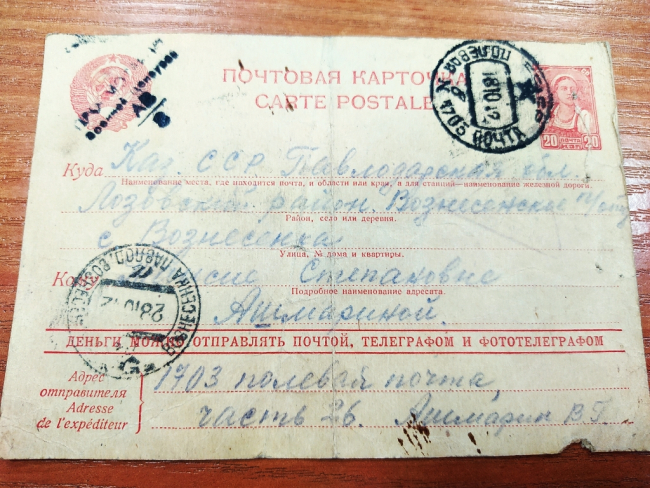 Просмотрено
Военной Цензурой
ПОЧТОВАЯ КАРТОЧКА
CARTE POSTALE
ПОЛЕВАЯ ПОЧТА
СССР
20 ПОЧТА 20
КОП.
Куда Каз. ССР Павлодарская обл.
Наименование места, где находится почта, и области или края, а для станций—наименование железной дороги.
Лозовский район Вознесенский
Район, село или деревня.
с Вознесенка
Улица, № дома и квартиры.
Степановне
Подробное наименование адресата.
Ашмариной.
ВОЗНЕСЕНКА ПАВЛОД.
ДЕНЬГИ МОЖНО ОТПРАВЛЯТЬ ПОЧТОЙ, ТЕЛЕГРАФОМ И ФОТОТЕЛЕГРАФОМ
Адрес 1703 полевая почта,
отправителя
Adresse часть 26. Ашмарин В.Г.
de l'expéditeur